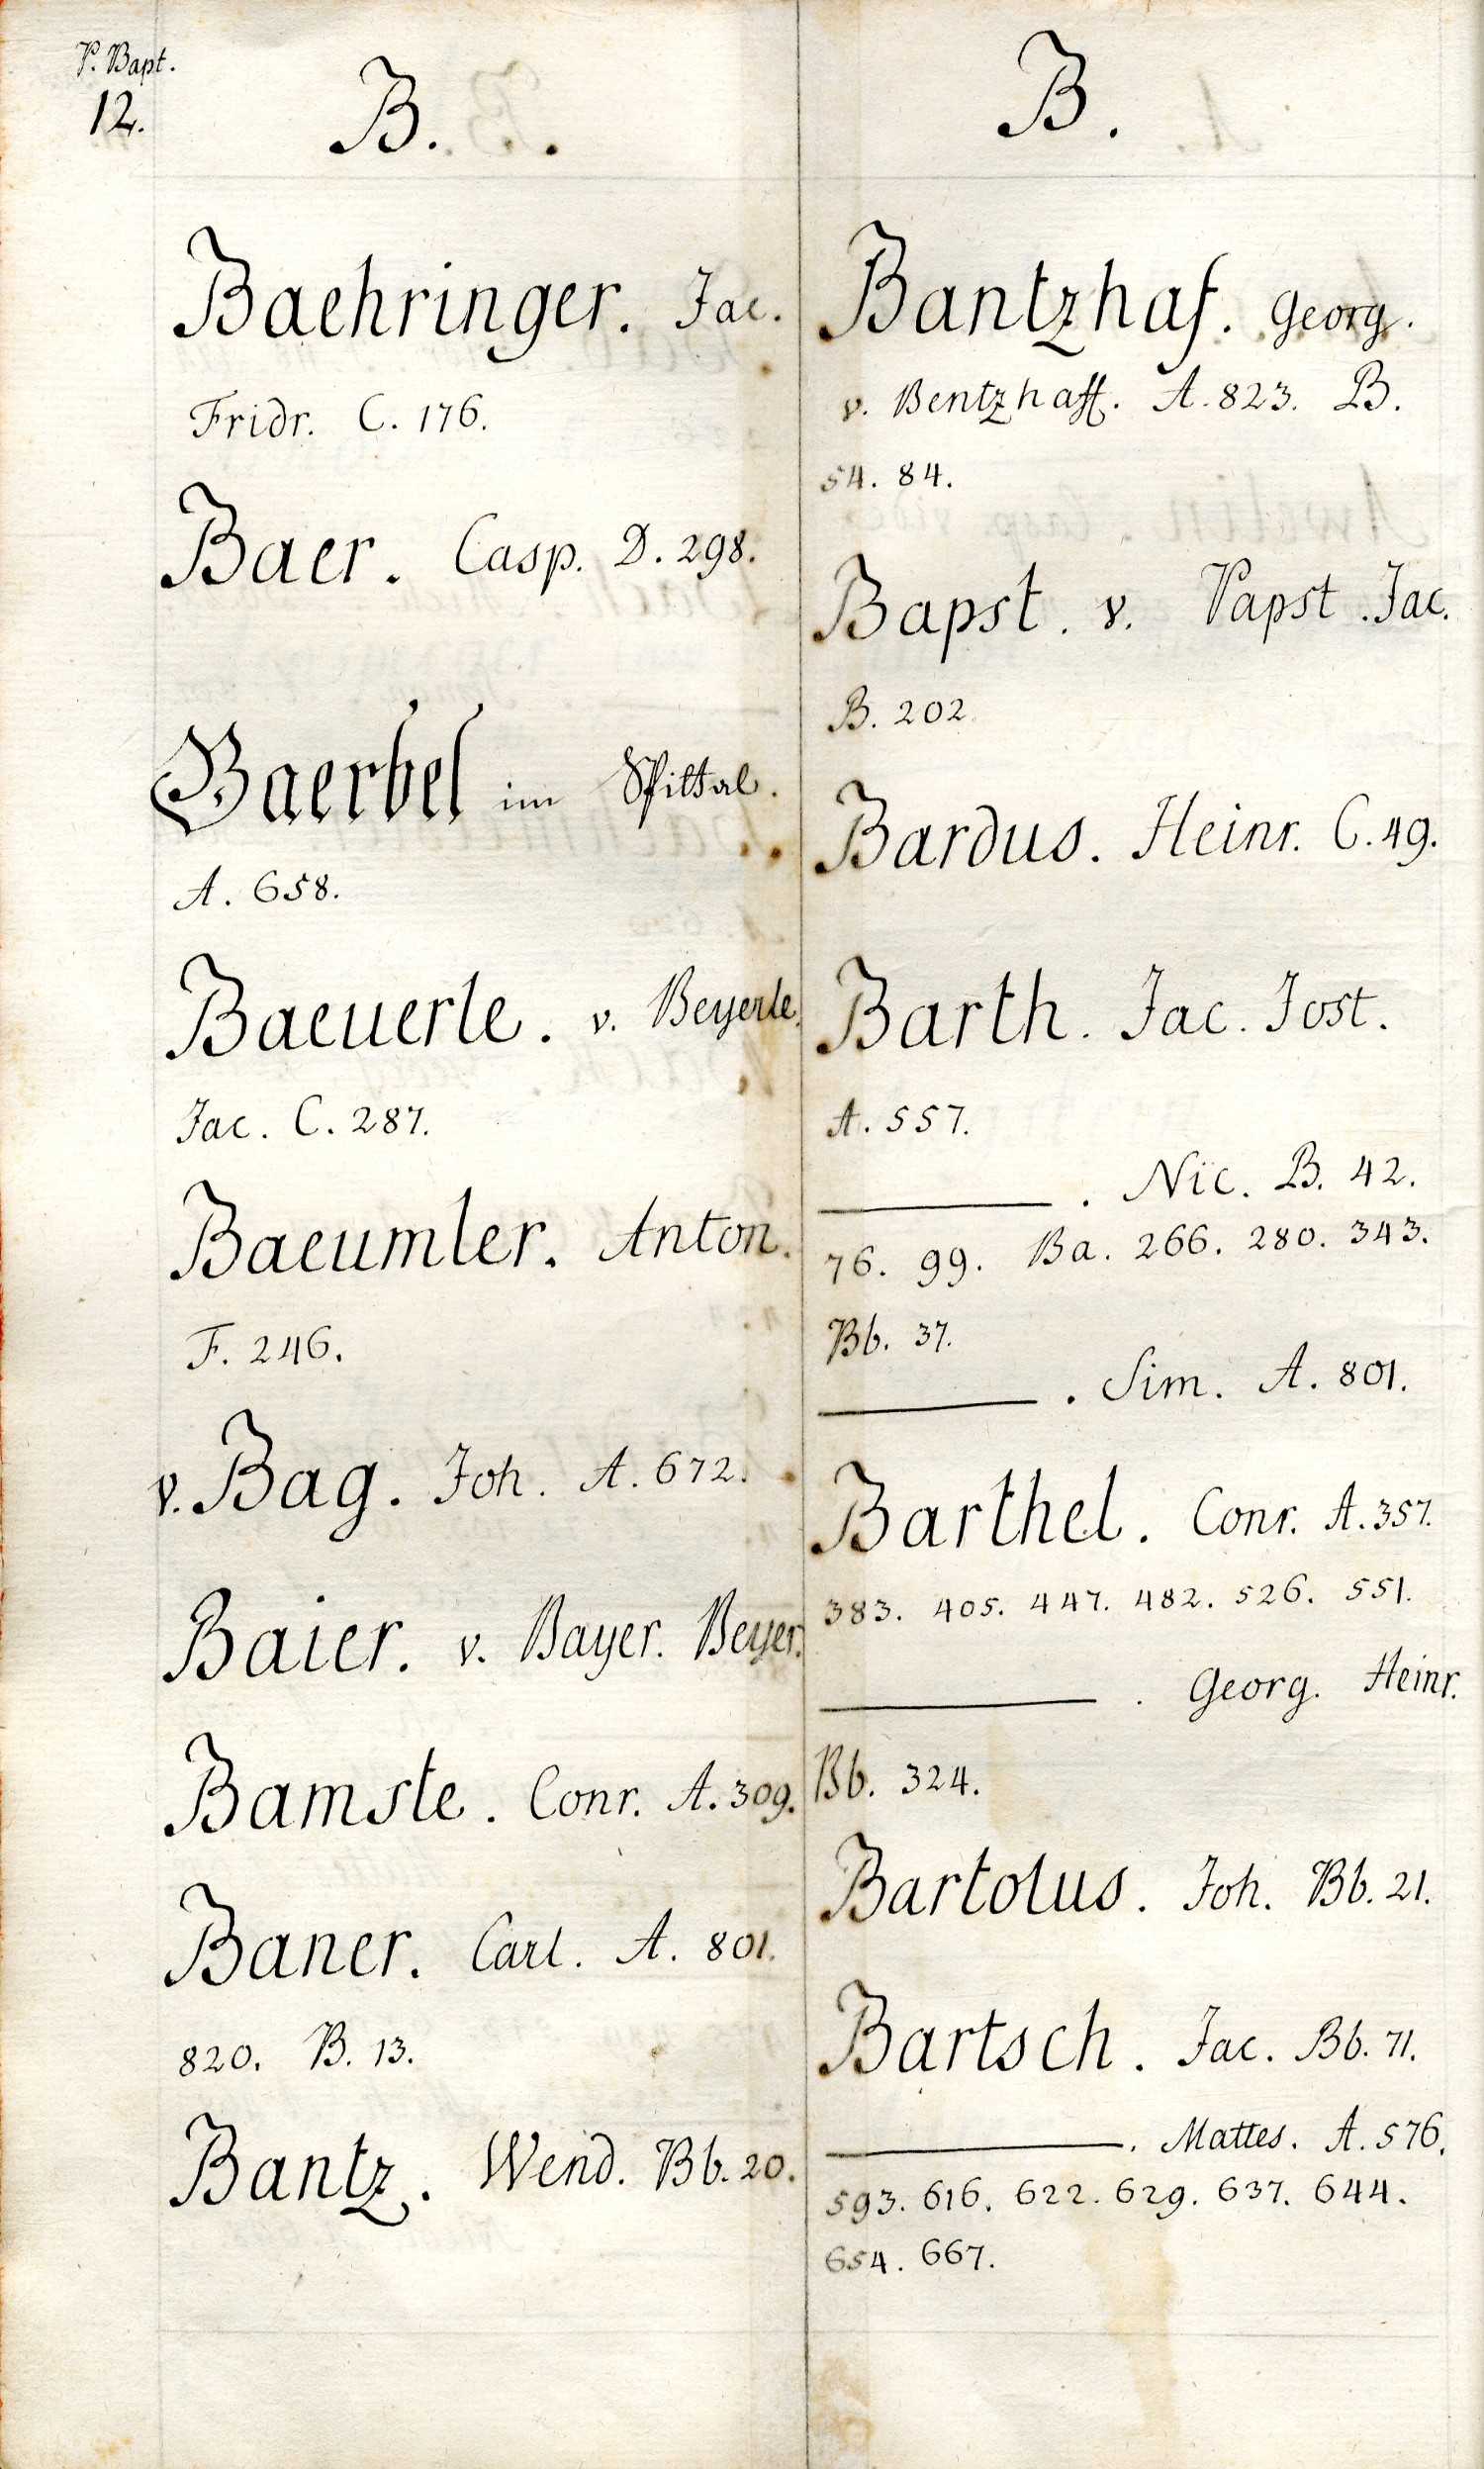 P. Bapt.
12.
B.
Baehringer. Jac.
Fridr. C. 176.
Baer. Casp. D. 298.
Baerbel im Spittal.
A. 658.
Baeuerle. v. Beyerle.
Jac. C. 287.
Baeumler. Anton.
F. 246.
v. Bag. Joh. A. 672.
Baier. v. Bayer. Beyer.
Bamste. Conr. A. 309.
Baner. Carl. A. 801.
820. B. 13.
Bantz. Wend. Bb. 20.
B.
Bantzhaf. Georg.
v. Bentzhaff. A. 823. B.
54. 84.
Bapst. v. Papst. Jac.
B. 202
Bardus. Heinr. C. 49.
Barth. Jac. Jost.
A. 557.
———. Nic. B. 42.
76. 99. Ba. 266. 280. 343.
Bb. 37.
———. Sim. A. 801.
Barthel. Conr. A. 357.
383. 405. 447. 482. 526. 551.
———. Georg. Heinr.
Bb. 324.
Bartolus. Joh. Bb. 21.
Bartsch. Jac. Bb. 71.
———. Mattes. A. 576.
593. 616. 622. 629. 637. 644.
654. 667.